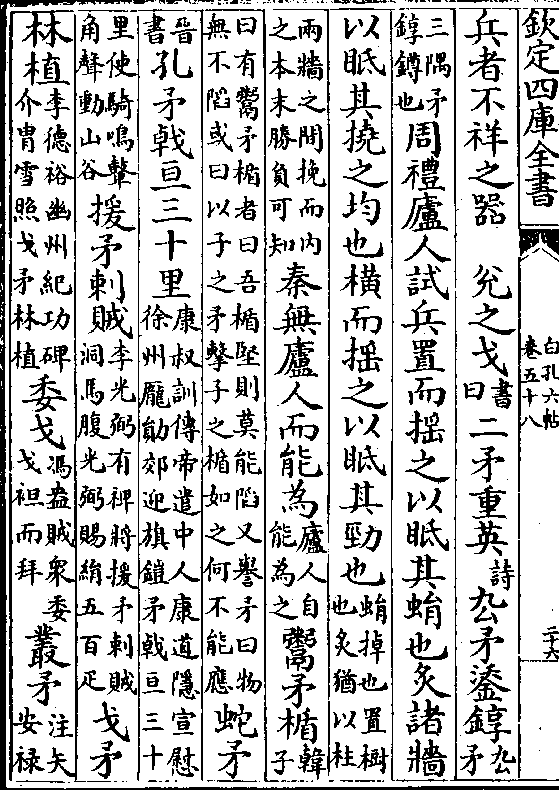 欽定四庫全書
白孔六帖
卷五十八
二十六
兵者不祥之器　兊之戈書曰二矛重英詩厹矛鋈錞厹矛
三隅矛錞鐏也周禮廬人試兵置而揺之以眡其蜎也炙諸牆
以眡其撓之均也橫而揺之以眡其勁也蜎掉也置樹也炙猶以柱
兩牆之間挽而内之本末勝負可知秦無廬人而能為廬人自能為之鬻矛楯韓子
曰有鬻矛楯者曰吾楯堅則莫能陷又譽矛曰物無不陷或曰以子之矛擊子之楯如之何不能應蛇矛
晉書孔矛戟亘三十里康叔訓傳帝遣中人康道隱宣慰徐州龎勛郊迎旗鎧矛戟亘三十
里使騎鳴鼙角聲動山谷援矛刺賊李光弼有裨將援矛刺賊洞馬腹光弼賜絹五百疋戈矛
林植李德裕幽州紀功碑介胄雪照戈矛林植委戈馮盎賊衆委戈袒而拜叢矛注矢安禄